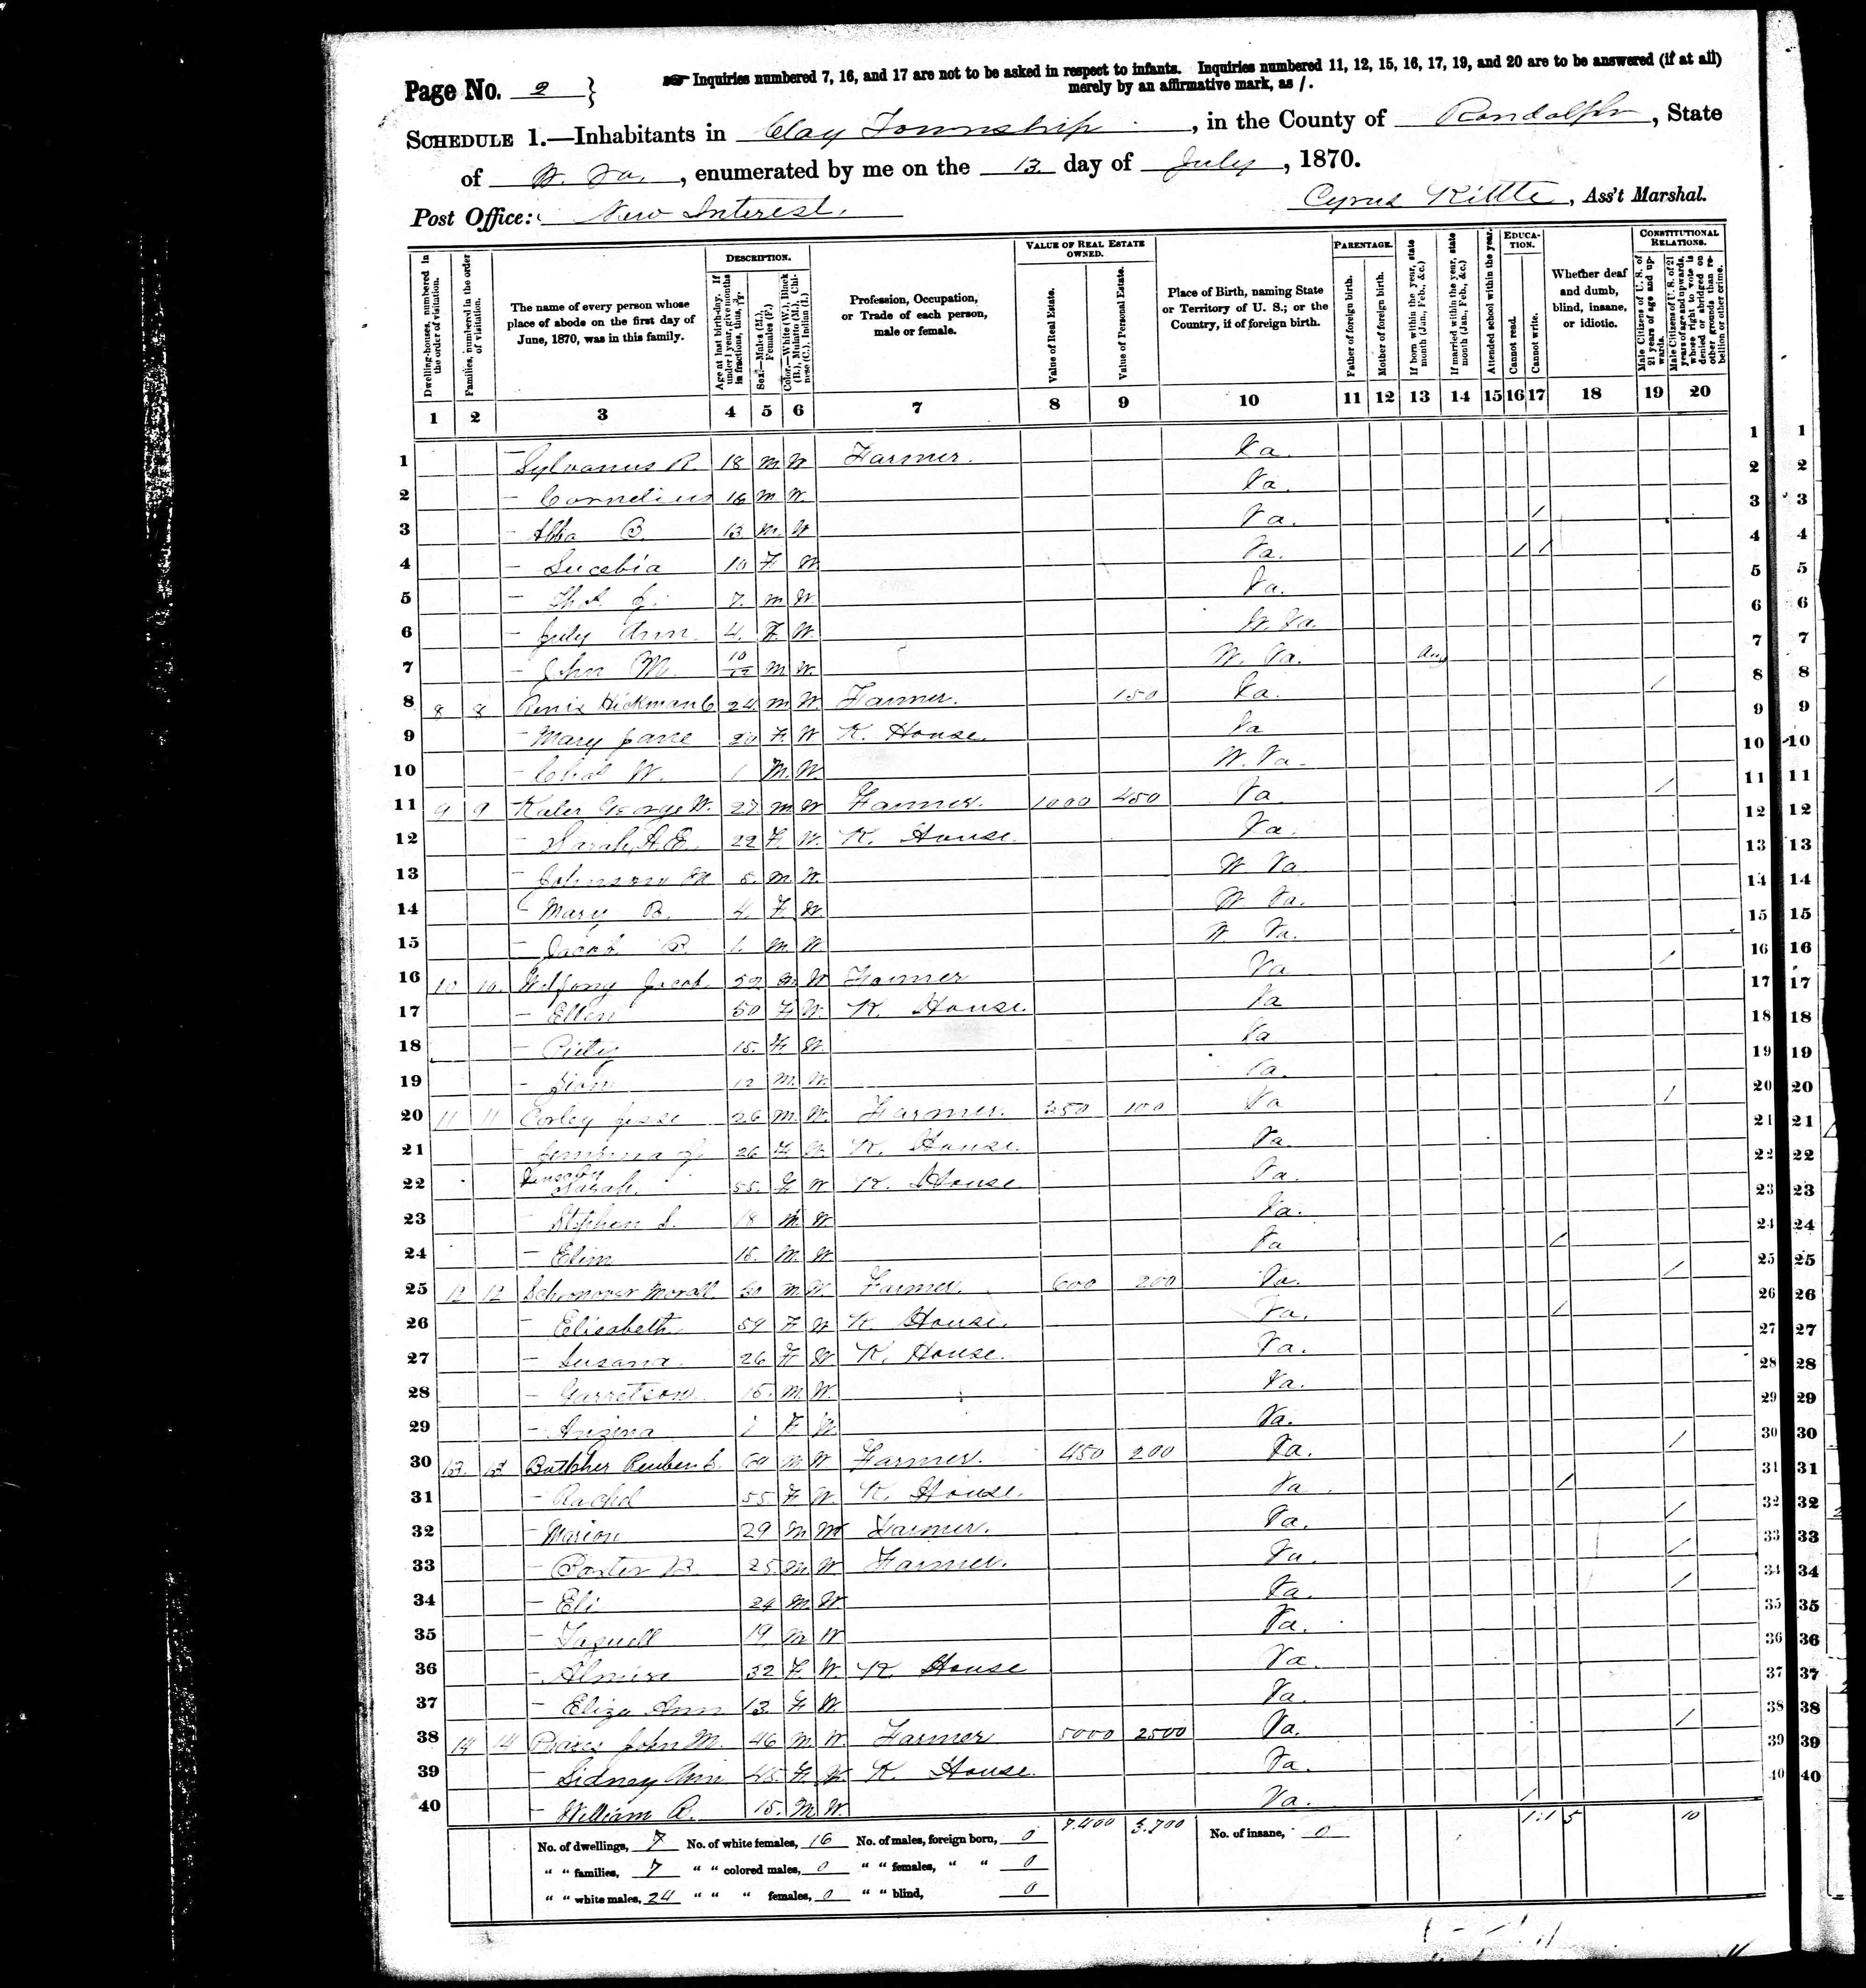 Page No. 2 }
☞ Inquiries numbered 7, 16, and 17 are not to be asked in respect to infants. Inquiries numbered 11, 12, 15, 16, 17, 19, and 20 are to be answered (if at all)
merely by an affirmative mark, as /.
SCHEDULE 1.—Inhabitants in Clay Township, in the County of Randolph, State
of W. Va., enumerated by me on the 13. day of July, 1870.
Post Office: New Interest.
Cyrus Kittle, Ass't Marshal.
Dwelling-houses, numbered in the order of visitation.
Families, numbered in the order of visitation.
The name of every person whose place of abode on the first day of June, 1870, was in this family.
DESCRIPTION.
Age at last birth-day. If under 1 year, give months in fractions, thus, 3/12.
Sex.—Males (M.), Females (F.)
Color.—White (W.), Black (B.), Mulatto (M.), Chinese (C.), Indian (I.)
Profession, Occupation, or Trade of each person, male or female.
VALUE OF REAL ESTATE OWNED.
Value of Real Estate.
Value of Personal Estate.
Place of Birth, naming State or Territory of U. S.; or the Country, if of foreign birth.
PARENTAGE.
Father of foreign birth.
Mother of foreign birth.
If born within the year, state month (Jan., Feb., &c.)
If married within the year, state month (Jan., Feb., &c.)
Attended school within the year.
EDUCATION.
Cannot read.
Cannot write.
Whether deaf and dumb, blind, insane, or idiotic.
CONSTITUTIONAL RELATIONS.
Male Citizens of U. S. of 21 years of age and upwards.
Male Citizens of U. S. of 21 years of age and upwards, whose right to vote is denied or abridged on other grounds than rebellion or other crime.
1 2 3 4 5 6 7 8 9 10 11 12 13 14 15 16 17 18 19 20
1 — Sylvanus R. 18 M W Farmer. Va. 1
2 — Cornelius 16 M W. Va. 2
3 — Abba B. 13 M. W Va. / 3
4 — 10 F W Va. / / 4
5 — 7. M W. Va. 5
6 — Ann. 4. F. W. W. Va. 6
7 — John M. 10/12 M W. W. Va. Aug 7
8 8 8 Hickman C 24 M W. Farmer. 150 Va. / 8
9 — Mary Jane 20 F. W K. House. Va 9
10 — W. 1 M. W. W. Va. 10
11 9 9 George W. 27 M W Farmer. 1000 450 Va / 11
12 — Sarah A. E. 22 F. W. K. House. Va. 12
13 — Johnson M 5. M. W. W. Va. 13
14 — Mary B. 4. F. W. W Va. 14
15 — Jacob B. 1. M. W W. Va. 15
16 10 10. Jacob. 52 M W Farmer Va / 16
17 — Ellen 50 F W. K. House. Va 17
18 — 15. F W. Va 18
19 — 12 M. W. Va. 19
20 11 11 Corley Jesse 26 M. W. Farmer. 350 100 Va / 20
21 — J. 26 F W. K. House. Va. 21
22 Sarah. 55. F W K. House Va. 22
23 — Stephen S. 18 M W Va. 23
24 — Elim 15. M. W. Va / 24
25 12 12 Schoonover 60 M W. Farmer. 600 200 Va. / 25
26 — Elisabeth 59 F W K. House. Va. / 26
27 — Susana. 26 F W K. House. Va. 27
28 — Garretson. 15. M. W. Va. 28
29 — 1 F W. Va. 29
30 13. 13 Butcher Reuben S. M W. Farmer. 450 200 Va. / 30
31 — Rachel 55. F W. K. House. Va / 31
32 — Marion 29 M W Farmer. Va. / 32
33 — B. 25. M. W Farmer. Va. / 33
34 — Eli 24 M. W. Va. / 34
35 — 19. M W Va. 35
36 — 32 F. W. K House Va. 36
37 — Eliza Ann 13. F W. Va. 37
38 14 14 John M. 46 M W. Farmer 5000 2500 Va. / 38
39 — Sidney Ann 45. F. W. K. House. Va. 39
40 — William R. 15. M W. Va. / 40
7.400 3.700 1 1 5 10
No. of dwellings, 7 No. of white females, 16 No. of males, foreign born, 0 No. of insane, 0
“ “ families, 7 “ “ colored males, 0 “ “ females, “ “ 0
“ “ white males, 24 “ “ “ females, 0 “ “ blind, 0